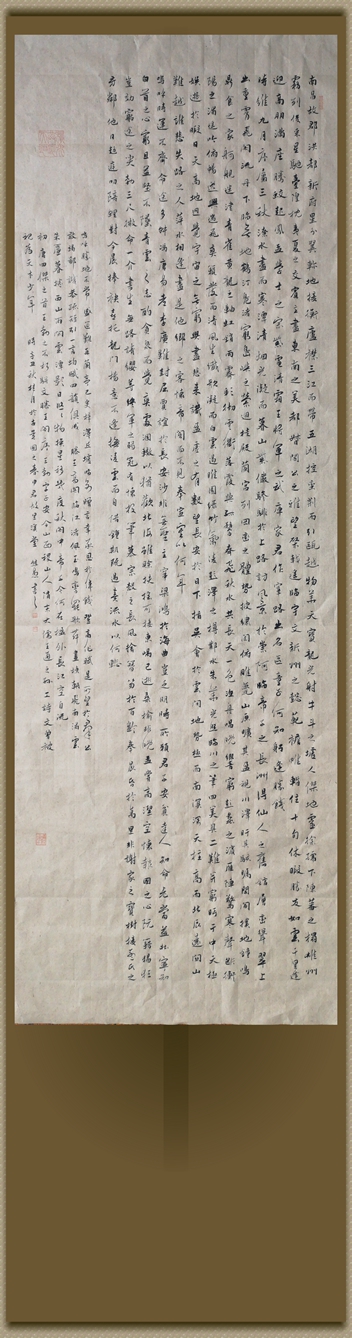 南昌故郡洪都新府星分翼軫地接衡廬襟三江而帶五湖控蠻荊而引甌越物華天寶龍光射牛斗之墟人傑地靈徐孺下陳蕃之榻雄州
霧列俊采星馳臺隍枕夷夏之交賓主盡東南之美都督閻公之雅望棨戟遙臨宇文新州之懿範襜帷暫駐十旬休暇勝友如雲千里逢
迎高朋滿座騰蛟起鳳孟學士之詞宗紫電清霜王將軍之武庫家君作宰路出名區童子何知躬逢勝餞
時維九月序屬三秋潦水盡而寒潭清煙光凝而暮山紫儼驂騑於上路訪風景於崇阿臨帝子之長洲得仙人之舊館層巒聳翠上
出重霄飛閣流丹下臨無地鶴汀鳧渚窮島嶼之縈迴桂殿蘭宮列岡巒之體勢披繡闥俯雕甍山原曠其盈視川澤紆其駭矚閭閻撲地鐘鳴
鼎食之家舸艦迷津青雀黃龍之軸虹銷雨霽彩徹雲衢落霞與孤鶩齊飛秋水共長天一色漁舟唱晚響窮彭蠡之濱雁陣驚寒聲斷衡
陽之浦遙吟俯暢逸興遄飛爽籟發而清風生纖歌凝而白雲遏睢園綠竹氣凌彭澤之樽鄴水朱華光照臨川之筆四美具二難并窮睇眄於中天極
娛遊於暇日天高地迥覺宇宙之無窮興盡悲來識盈虛之有數望長安於日下指吳會於雲間地勢極而南溟深天柱高而北辰遠關山
難越誰悲失路之人萍水相逢盡是他鄉之客懷帝閽而不見奉宣室以何年
嗚呼時運不齊命途多舛馮唐易老李廣難封屈賈誼於長沙非無聖主竄梁鴻於海曲豈乏明時所賴君子安貧達人知命老當益壯寧知
白首之心窮且益堅不墜青雲之志酌貪泉而覺爽處涸轍以猶歡北海雖賒扶搖可接東隅已逝桑榆非晚孟嘗高潔空懷報國之心阮籍猖狂
豈效窮途之哭勃三尺微命一介書生無路請纓等終軍之弱冠有懷投筆慕宗愨之長風捨簪笏於百齡奉晨昏於萬里非謝家之寶樹接孟氏之
芳鄰他日趨庭叨陪鯉對今晨捧袂喜托龍門楊意不逢撫凌雲而自惜鍾期既遇奏流水以何慚
嗚呼勝地不常盛筵難再蘭亭已矣梓澤丘墟臨別贈言幸承恩於偉餞登高作賦是所望於群公
敢竭鄙誠恭疏短引一言均賦四韻俱成滕王高閣臨江渚佩玉鳴鸞罷歌舞畫棟朝飛南浦雲
朱簾暮捲西山雨閒雲潭影日悠悠物換星移幾度秋閣中帝子今何在檻外長江空自流